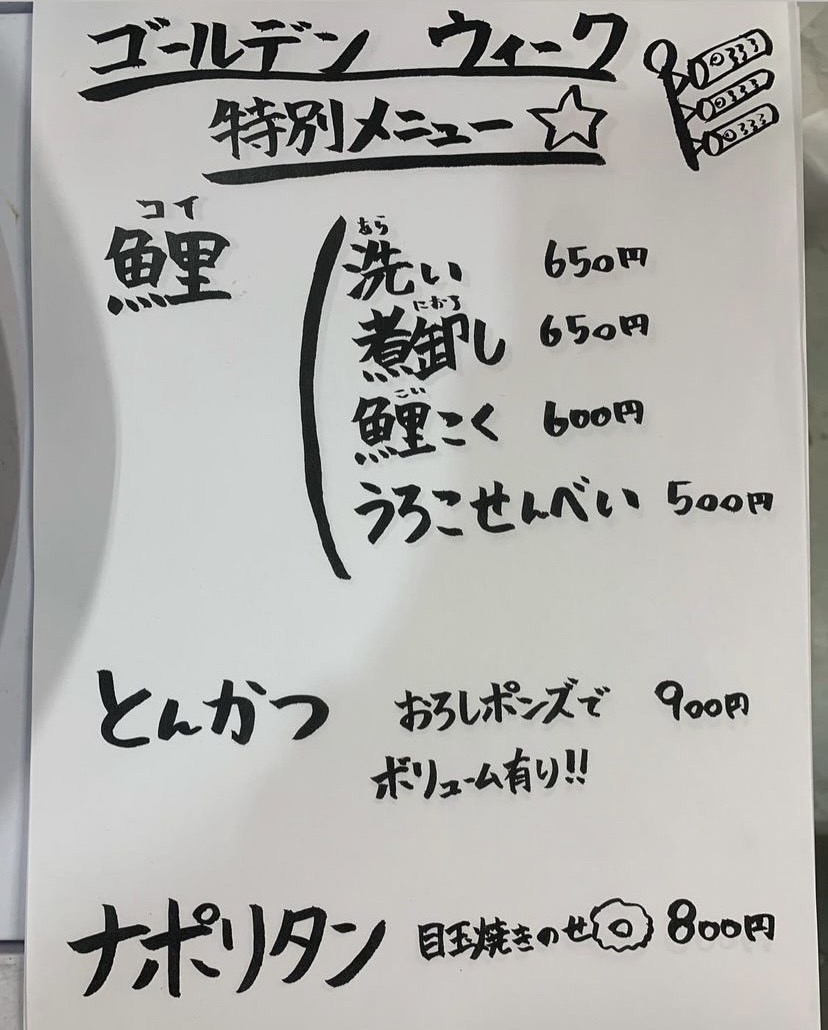 ゴールデン ウィーク
特別メニュー☆
コイ
鯉
あら
洗い 650円
におろ
煮卸し 650円
こい
鯉こく 600円
うろこせんべい 500円
とんかつ おろしポンズで 900円
ボリューム有り!!
ナポリタン 目玉焼きのせ 800円